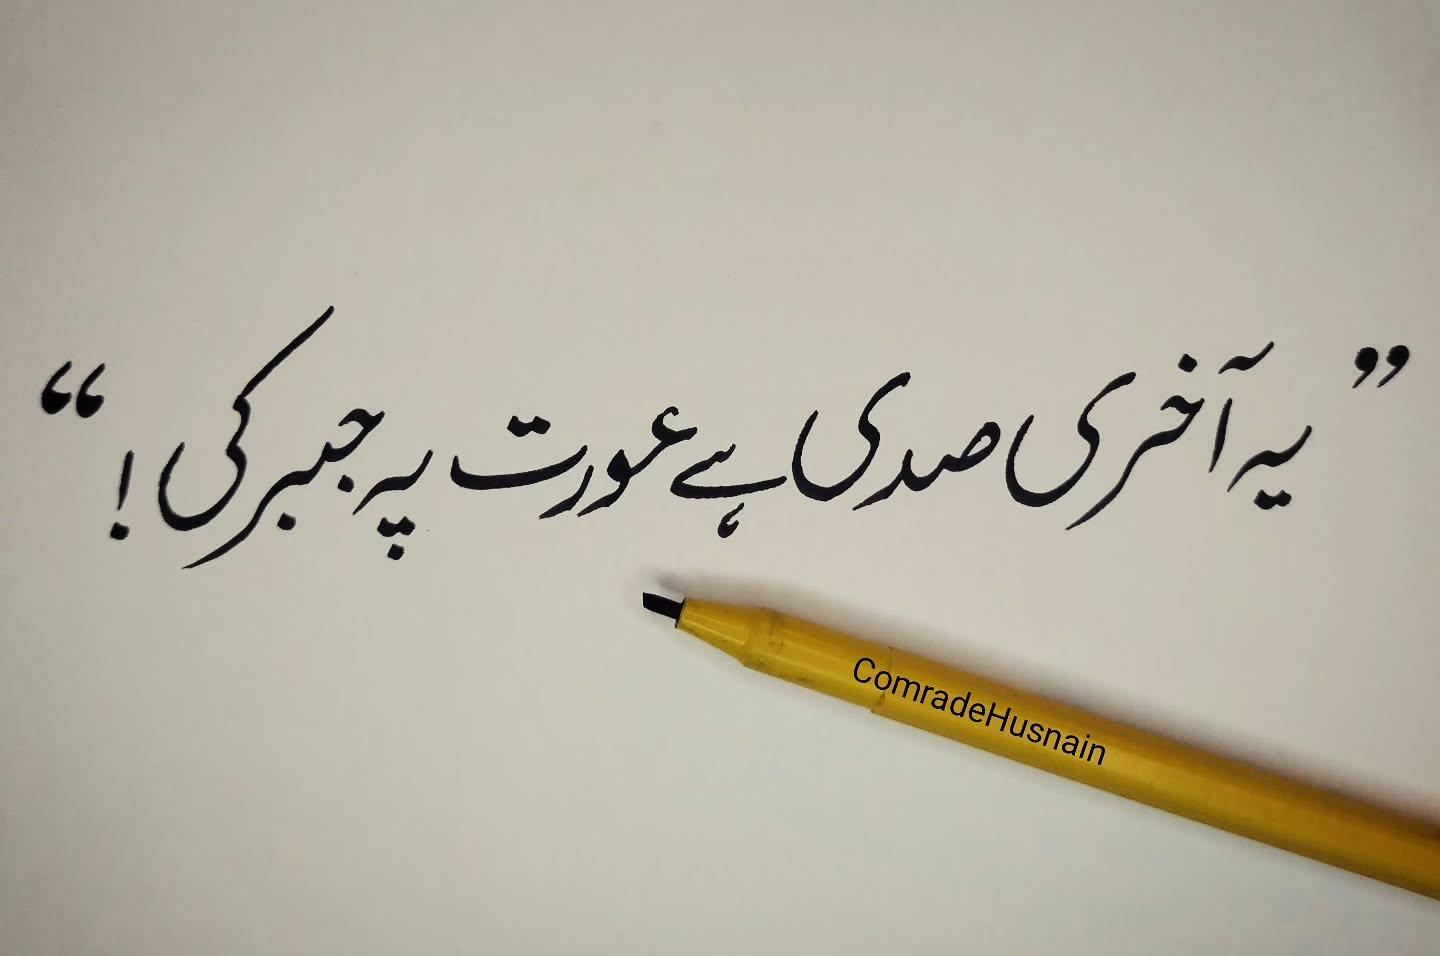 ”یہ آخری صدی ہے عورت پہ جبر کی !“
ComradeHusnain